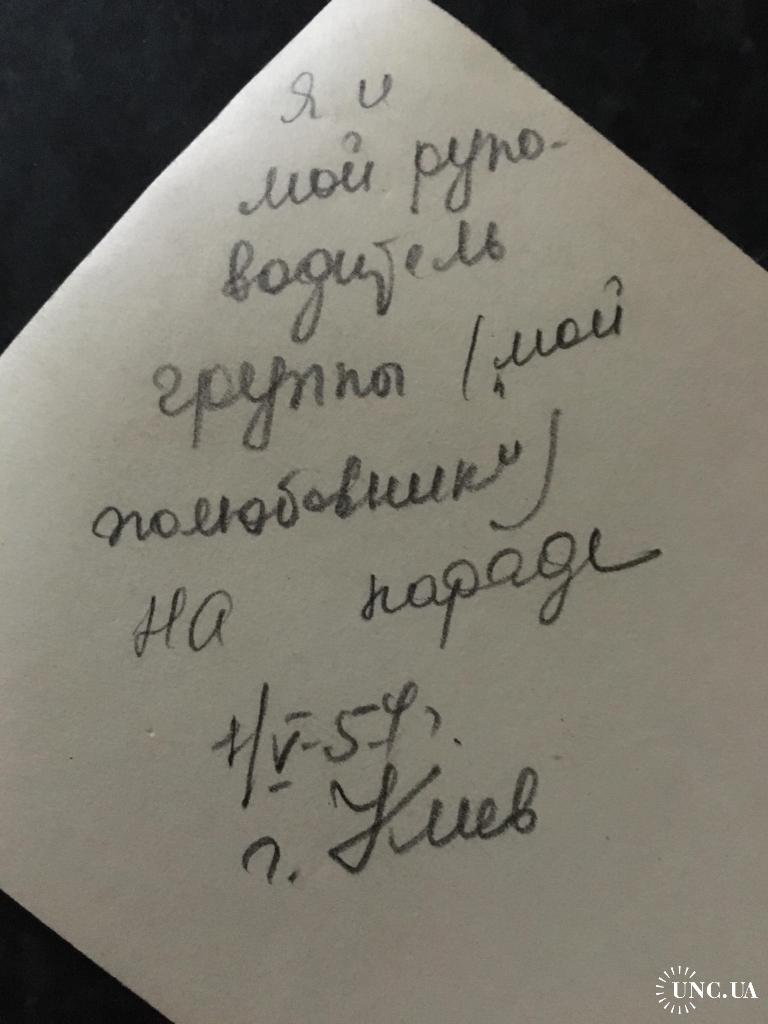 я и
мой руко-
водитель
группы (мой
полюбовник")
на параде
1/V-57г.
г. Киев
UNC.UA